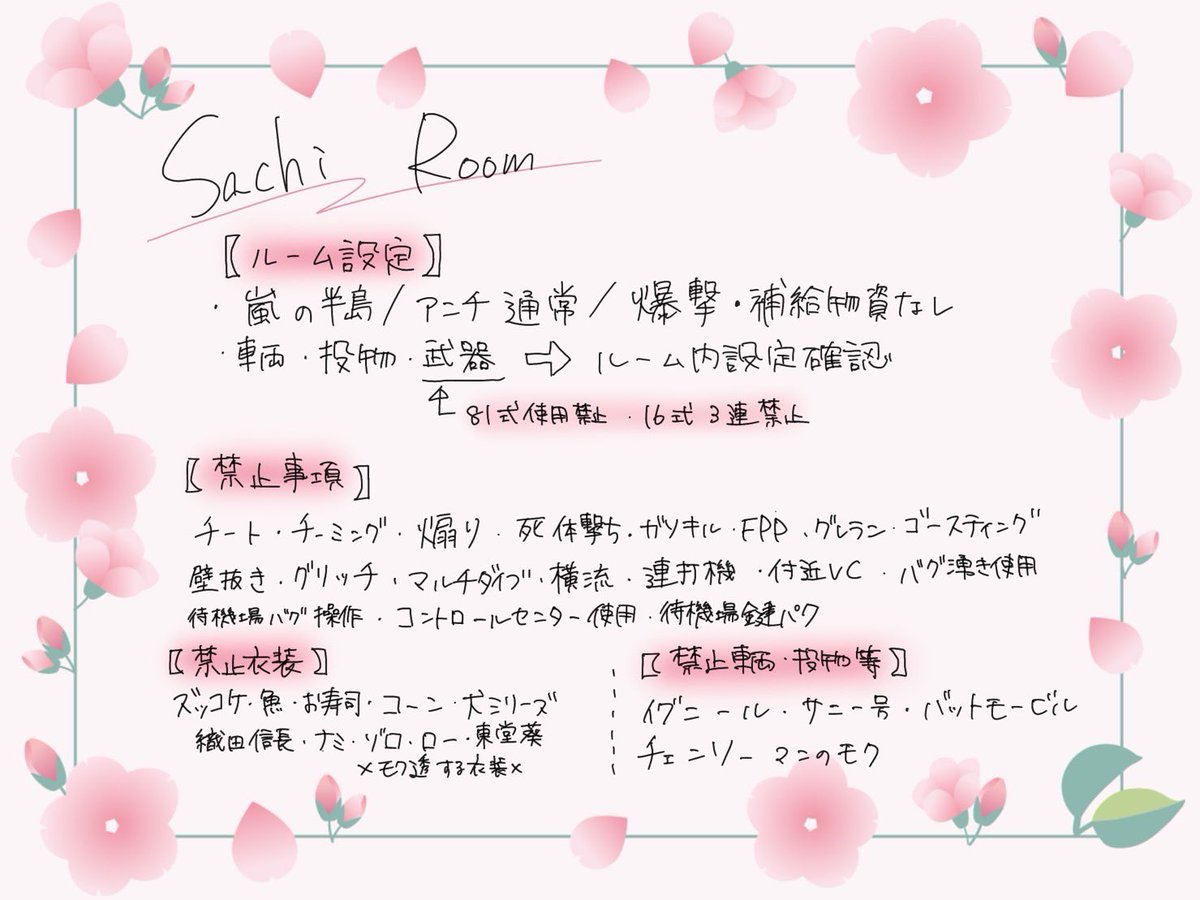 Sachi Room
〖ルーム設定〗
・嵐の半島/アンチ通常/爆撃・補給物資なし
・車両・投物・武器 ⇨ ルーム内設定確認
81式使用禁止・16式3連禁止
〖禁止事項〗
チート・チーミング・煽り・死体撃ち・ガソキル・FPP、グレラン・ゴースティング
壁抜き・グリッチ、マルチダイブ・横流・連打機・付近VC・バグ湧き使用
待機場バグ操作・コントロールセンター使用・待機場鍵パク
〖禁止衣装〗
ズッコケ・魚・お寿司・コーン・犬ミリーズ
織田信長・ナミ・ゾロ・ロー・東堂葵
×モク透する衣装×
〖禁止車両・投物等〗
イグニール・サニー号・バットモービル
チェンソーマンのモク